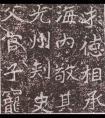 才德相承
海内敬其
光州刺史
父官子寵